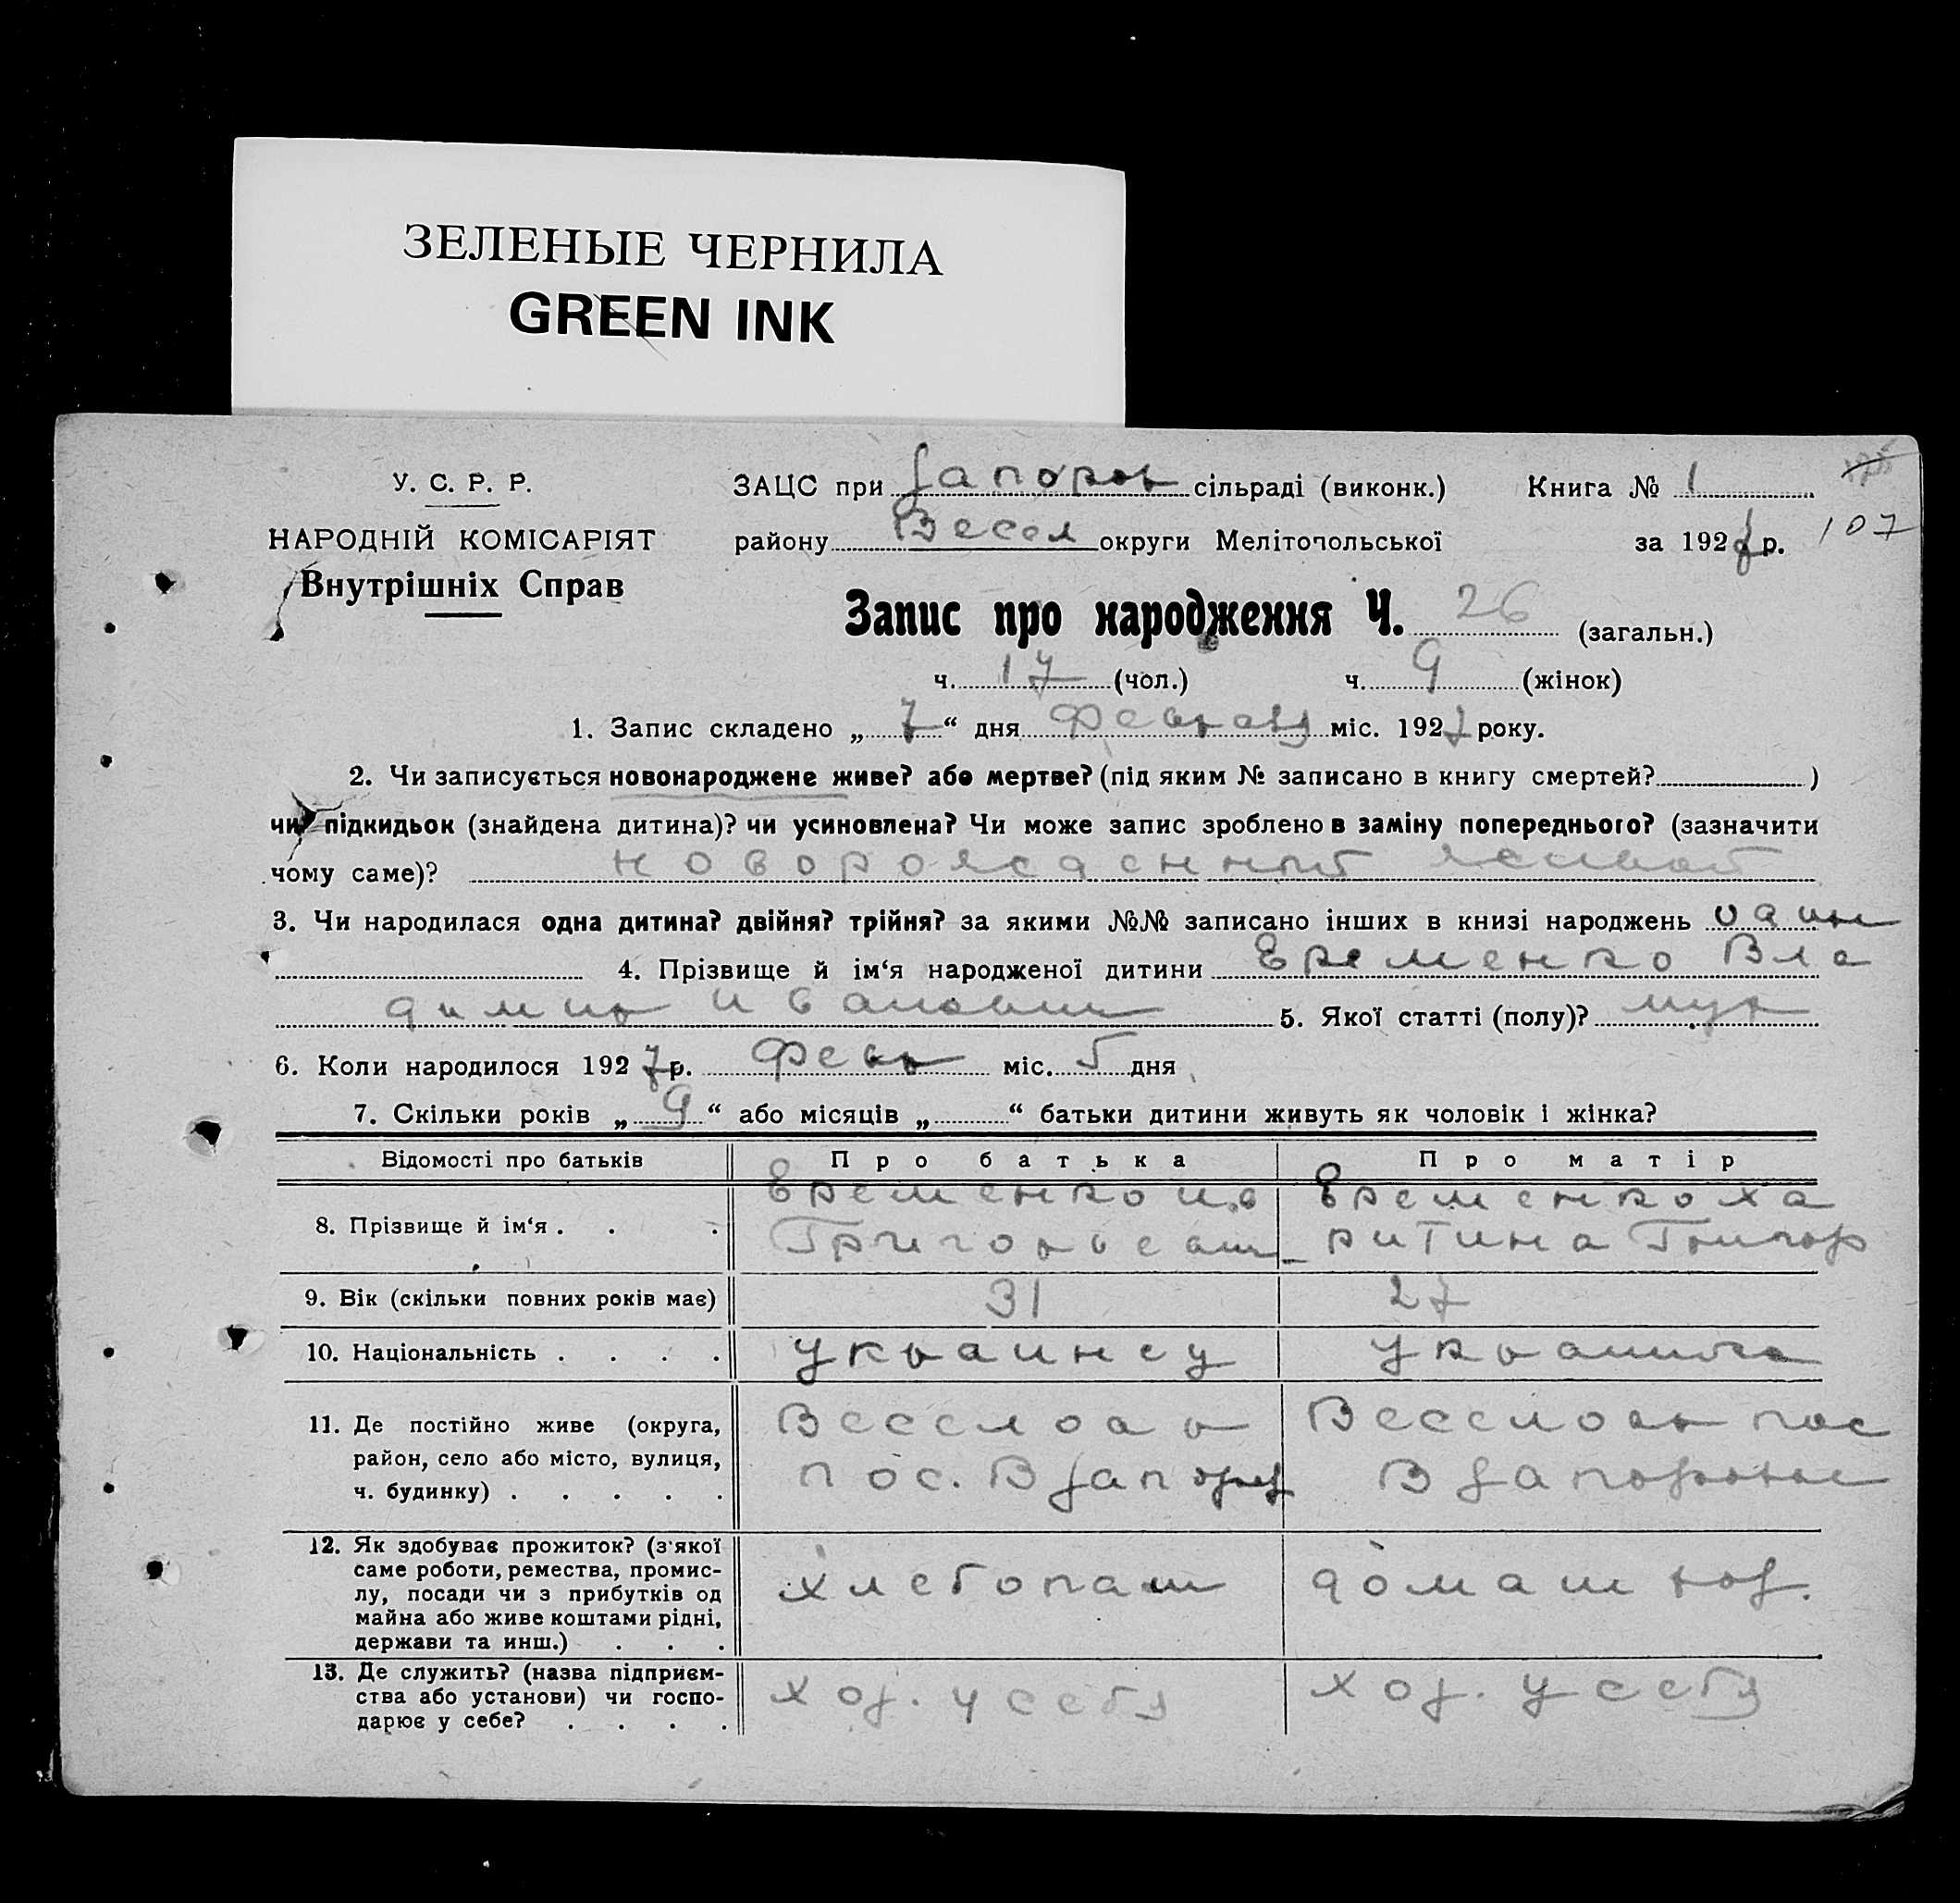 ЗЕЛЕНЫЕ ЧЕРНИЛА
GREEN INK
У. С. Р. Р.
НАРОДНІЙ КОМІСАРІЯТ
Внутрішніх Справ
ЗАЦС при Запорож сільраді (виконк.) Книга № 1
району Весел округи Мелітопольської за 1927 р. 107
Запис про народження Ч. 26 (загальн.)
ч. 17 (чол.) ч. 9 (жінок)
1. Запис складено „ 7 “ дня февраля міс. 1927 року.
2. Чи записується новонароджене живе? або мертве? (під яким № записано в книгу смертей? )
чи підкидьок (знайдена дитина)? чи усиновлена? Чи може запис зроблено в заміну попереднього? (зазначити
чому саме)? новорожденный живой
3. Чи народилася одна дитина? двійня? трійня? за якими №№ записано інших в книзі народжень один
4. Прізвище й ім‘я народженої дитини Еременко Вла
димир Иванович 5. Якої статті (полу)? муж
6. Коли народилося 1927 р. февр міс. 5 дня
7. Скільки років „ 9 “ або місяців „ “ батьки дитини живуть як чоловік і жінка?
Відомості про батьків Про батька Про матір
8. Прізвище й ім‘я . . . Еременко Ив Еременко Ха
Григорьевич ритина Григор
9. Вік (скільки повних років має) 31 27
10. Національність . . . . украинец украинка
11. Де постійно живе (округа, Веселовс Веселовс пос
район, село або місто, вулиця, пос. В Запорож В Запорожье
ч. будинку) . . . . .
12. Як здобуває прожиток? (з якої
саме роботи, ремества, промис-
лу, посади чи з прибутків од хлебопаш домаш хоз.
майна або живе коштами рідні,
держави та инш.) . . .
13. Де служить? (назва підприєм-
ства або установи) чи госпо- хоз. у себя хоз. у себя
дарює у себе? . . . .